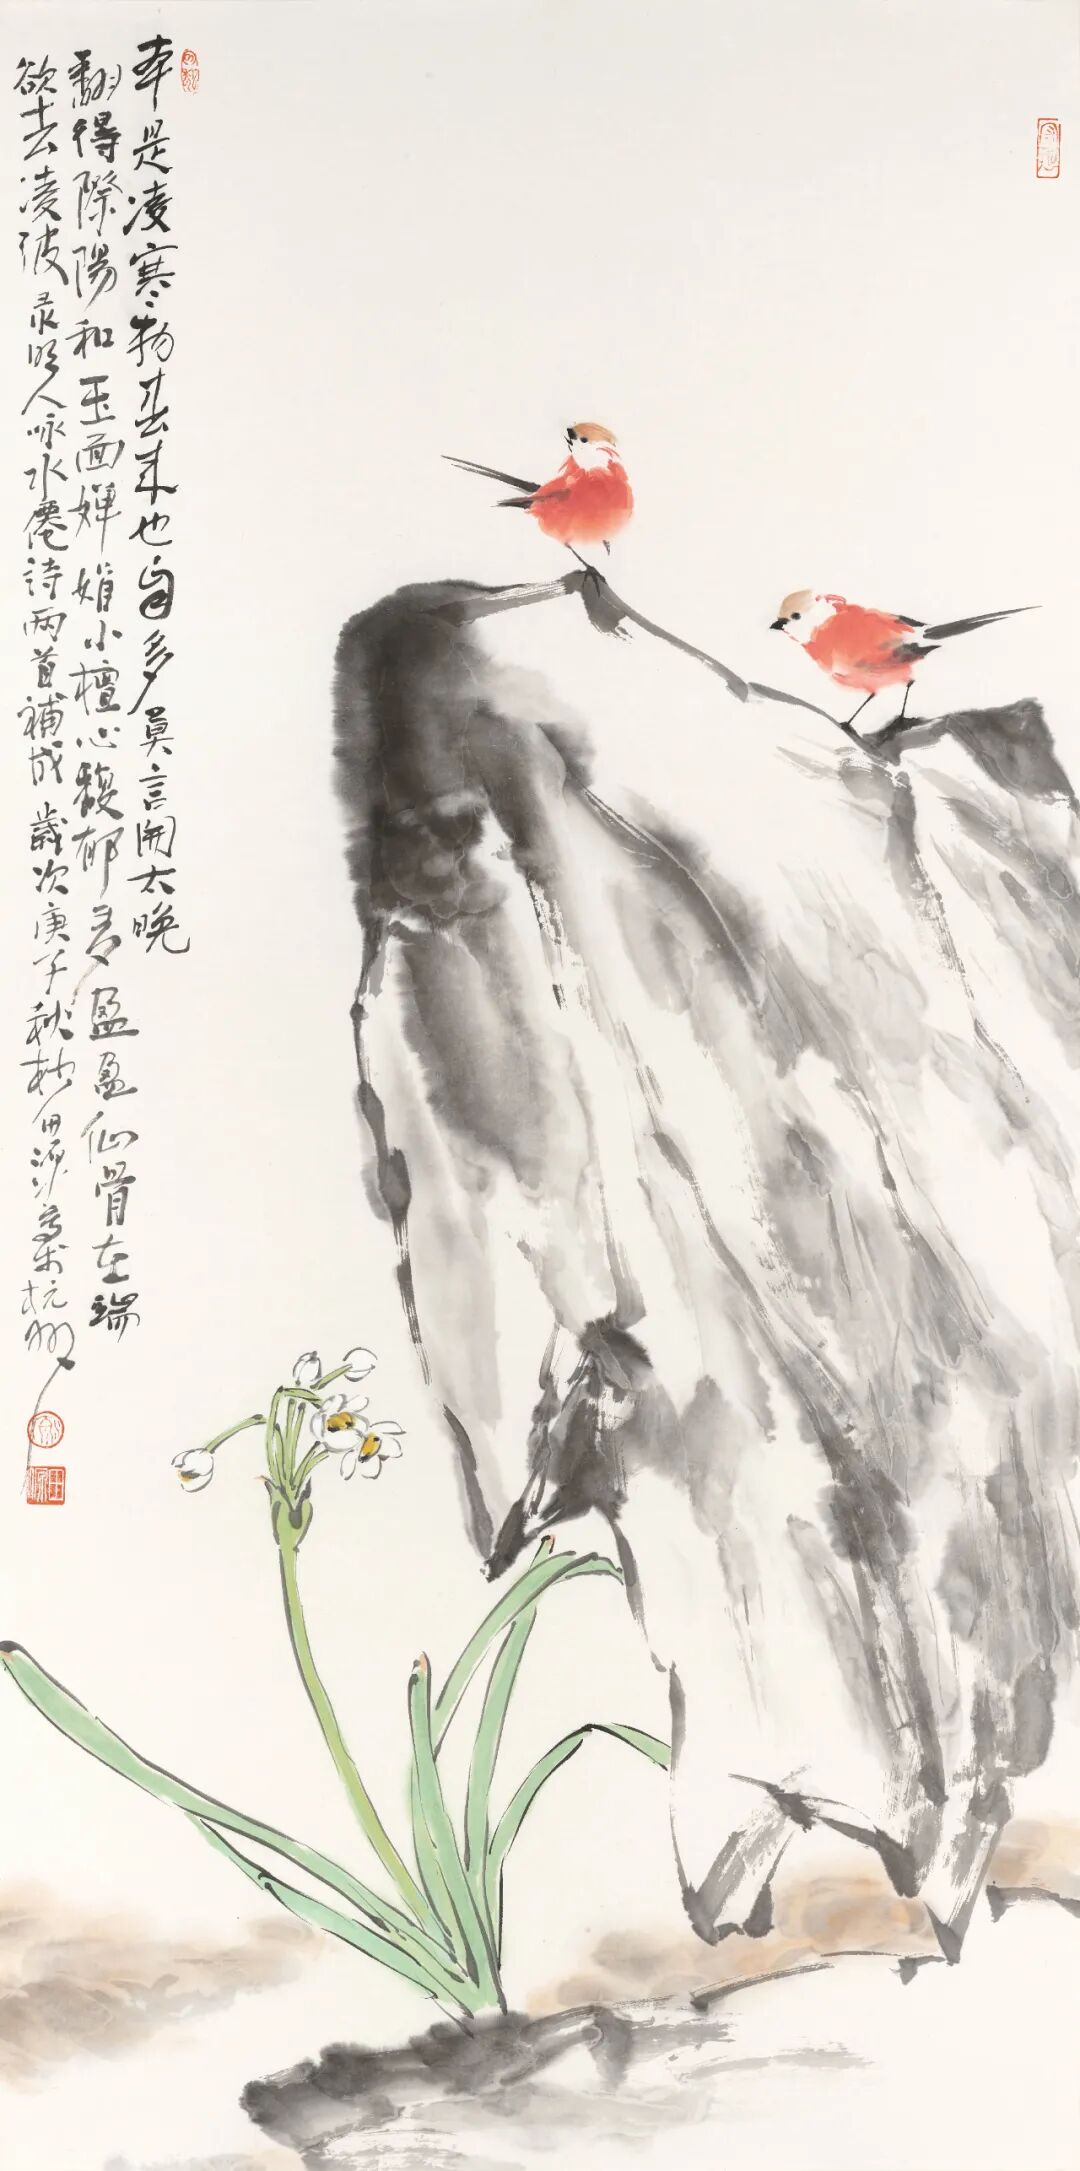 本是凌寒物春来也自多莫言開太晚
翻得際陽和玉面嬋娟小檀心馥郁多盈盈仙骨在端
欲去凌波录明人咏水僊詩兩首補成歲次庚子秋杪田源寫於杭州